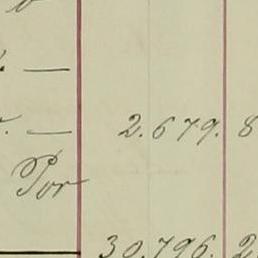 —
— 2.679. 8
Por
30.796. 2